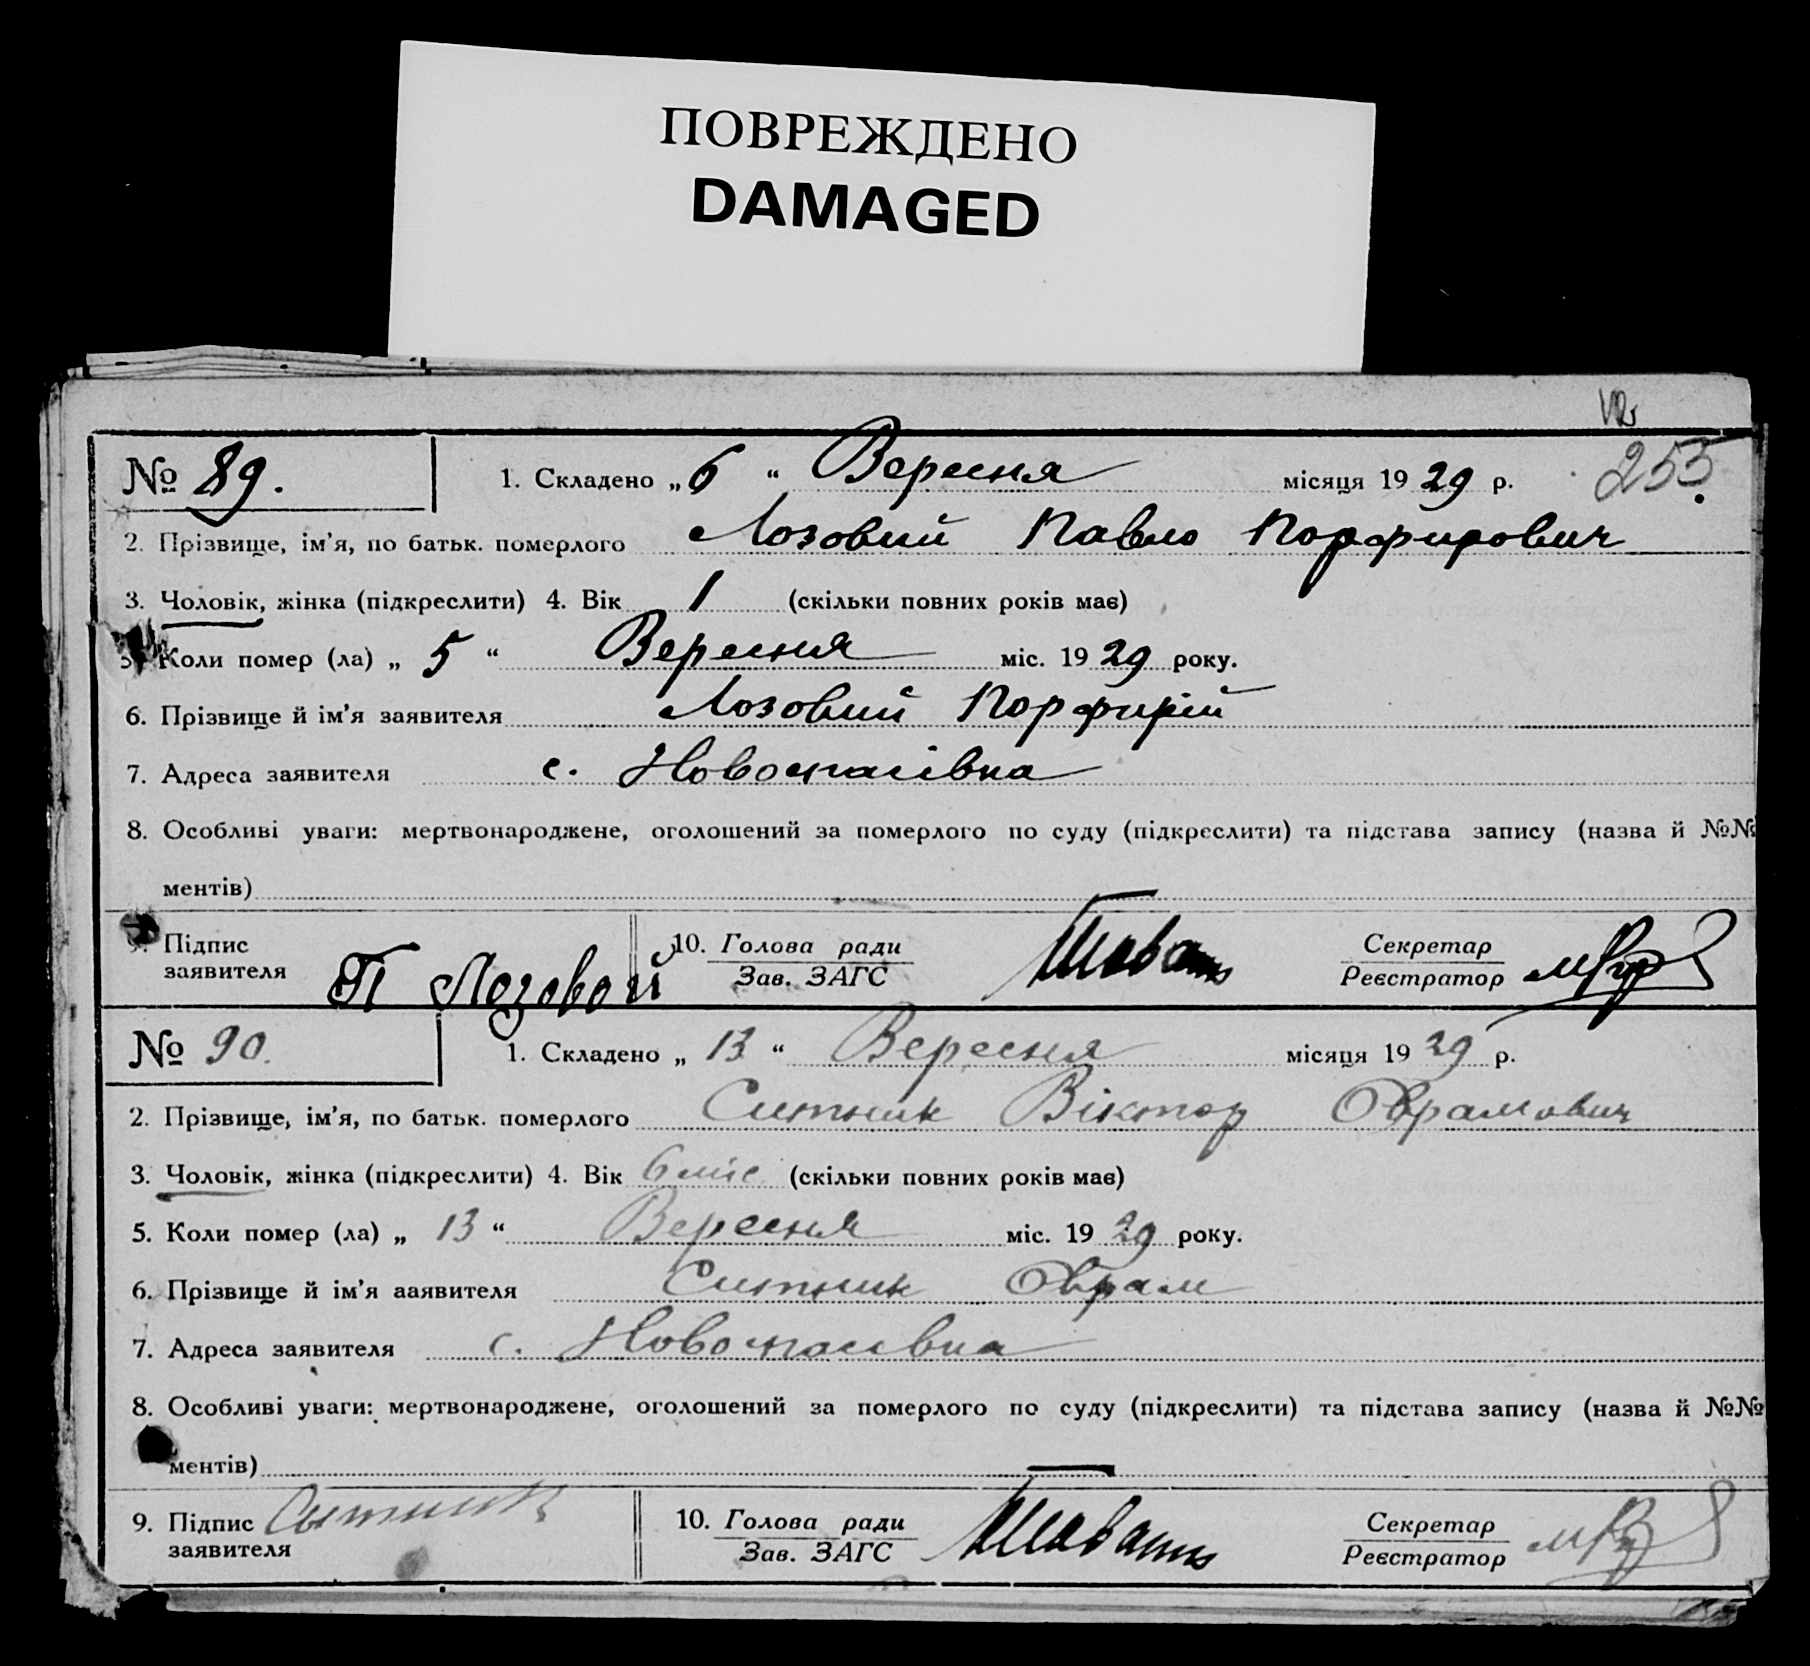 ПОВРЕЖДЕНО
DAMAGED
№ 89. 1. Складено „ 6 “ Вересня місяця 19 29 р. 255
2. Прізвище, ім’я, по батьк. померлого Лозовий Павло Порфирович
3. Чоловік, жінка (підкреслити) 4. Вік 1 (скільки повних років має)
5. Коли помер (ла) „ 5 “ Вересня міс. 19 29 року.
6. Прізвище й ім’я заявителя Лозовий Порфирій
7. Адреса заявителя с. Новоспасівка
8. Особливі уваги: мертвонароджене, оголошений за померлого по суду (підкреслити) та підстава запису (назва й №№
ментів)
9. Підпис заявителя П Лозовой 10. Голова ради Секретар
Зав. ЗАГС Реєстратор
№ 90. 1. Складено „ 13 “ Вересня місяця 19 29 р.
2. Прізвище, ім’я, по батьк. померлого Ситник Віктор Оврамович
3. Чоловік, жінка (підкреслити) 4. Вік 6 міс (скільки повних років має)
5. Коли помер (ла) „ 13 “ Вересня міс. 19 29 року.
6. Прізвище й ім’я ааявителя Ситник Оврам
7. Адреса заявителя с. Новоспасівка
8. Особливі уваги: мертвонароджене, оголошений за померлого по суду (підкреслити) та підстава запису (назва й №№
ментів)
9. Підпис заявителя Сытник 10. Голова ради Секретар
Зав. ЗАГС Реєстратор